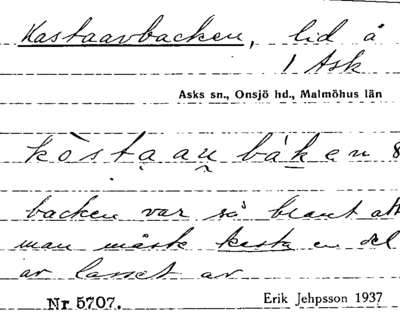 Kastaavbacken, lid å
1 Ask
Asks sn., Onsjö hd., Malmöhus län
backen var så brant att
man måste kasta en del
av lasset av
Nr 5707. Erik Jehpsson 1937